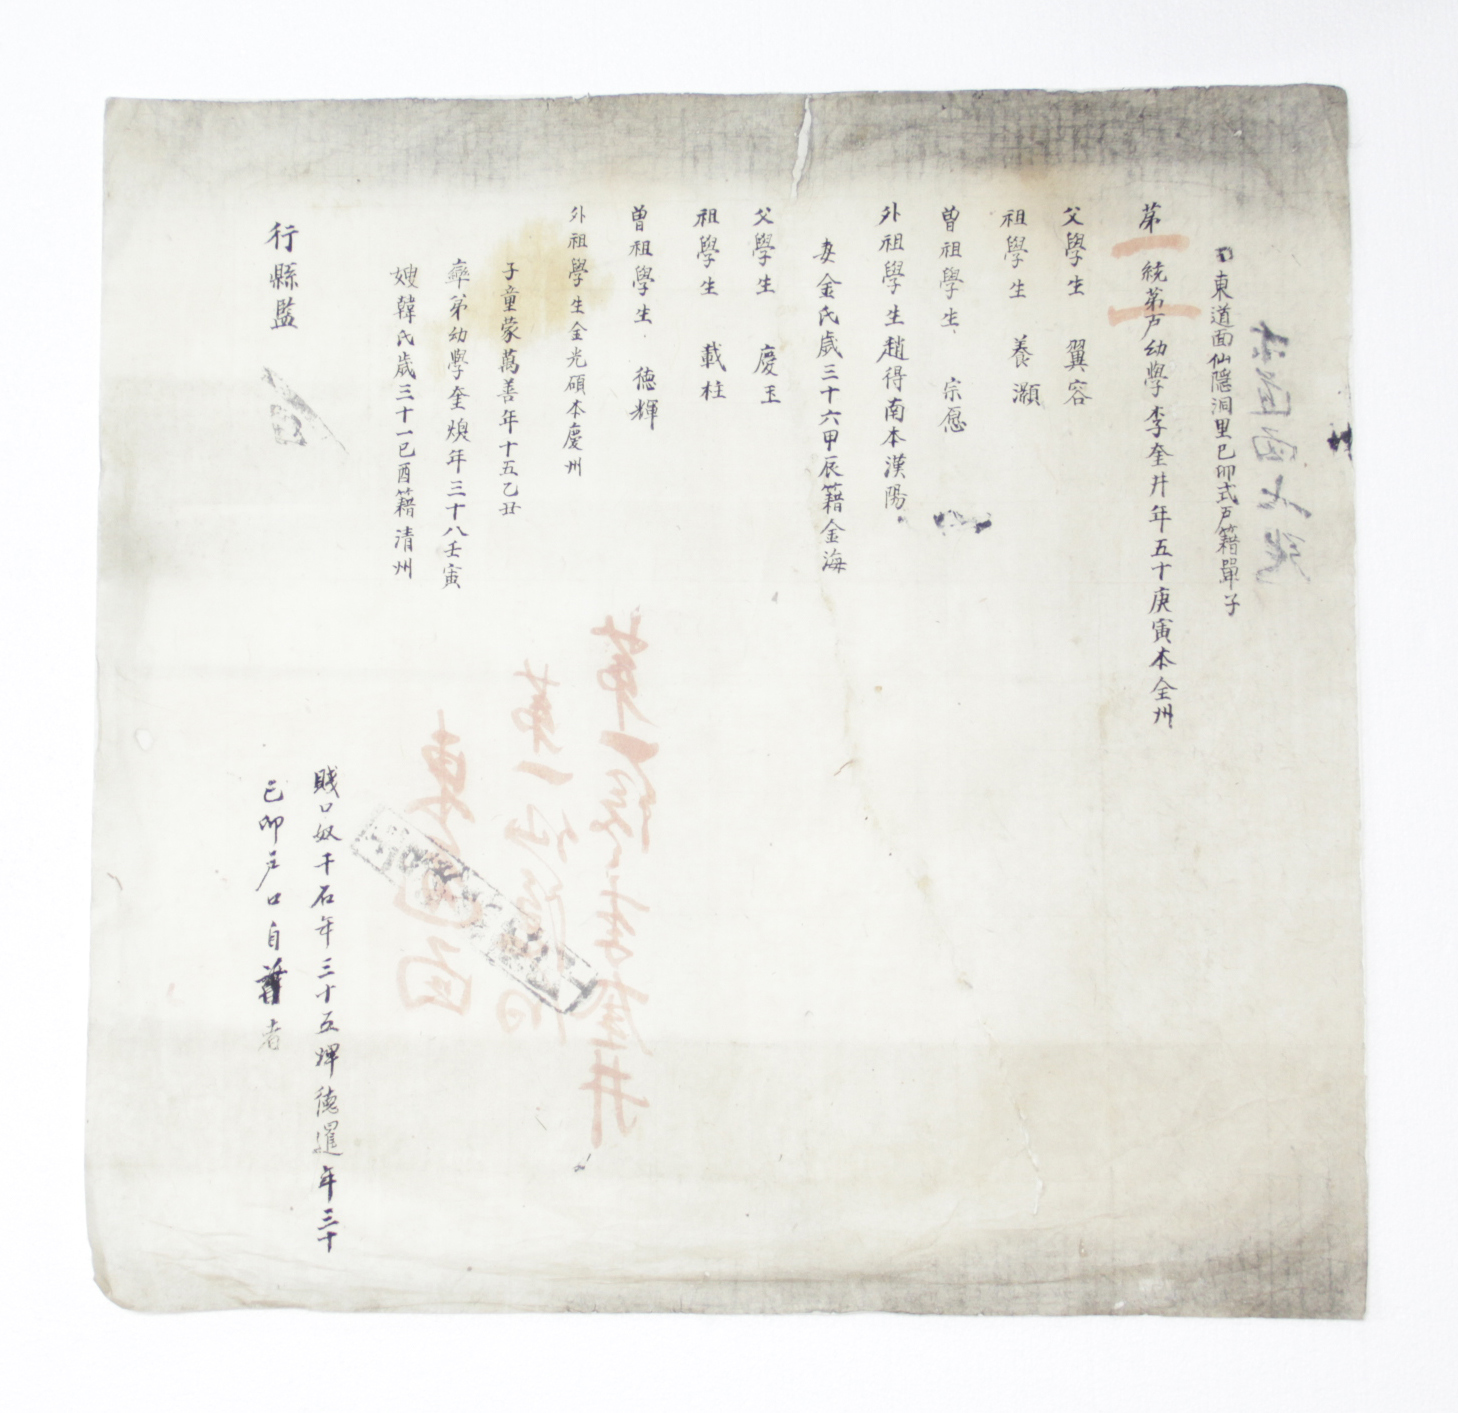 東道面仙隱洞里己卯式戶籍單子
第一統第一戶幼學李奎井年五十庚寅本全州
父學生 翼容
祖學生 養灝
曾祖學生 宗愿
外祖學生趙得南本漢陽
妻金氏歲三十六甲辰籍金海
父學生 慶玉
祖學生 載柱
曾祖學生 德輝
外祖學生金光碩本慶州
子童蒙萬善年十五乙丑
弟幼學奎煥年三十八壬寅
嫂韓氏歲三十一己酉籍清州
賤口奴干石年三十五婢德暹年三十
己卯戶口自者
行縣監